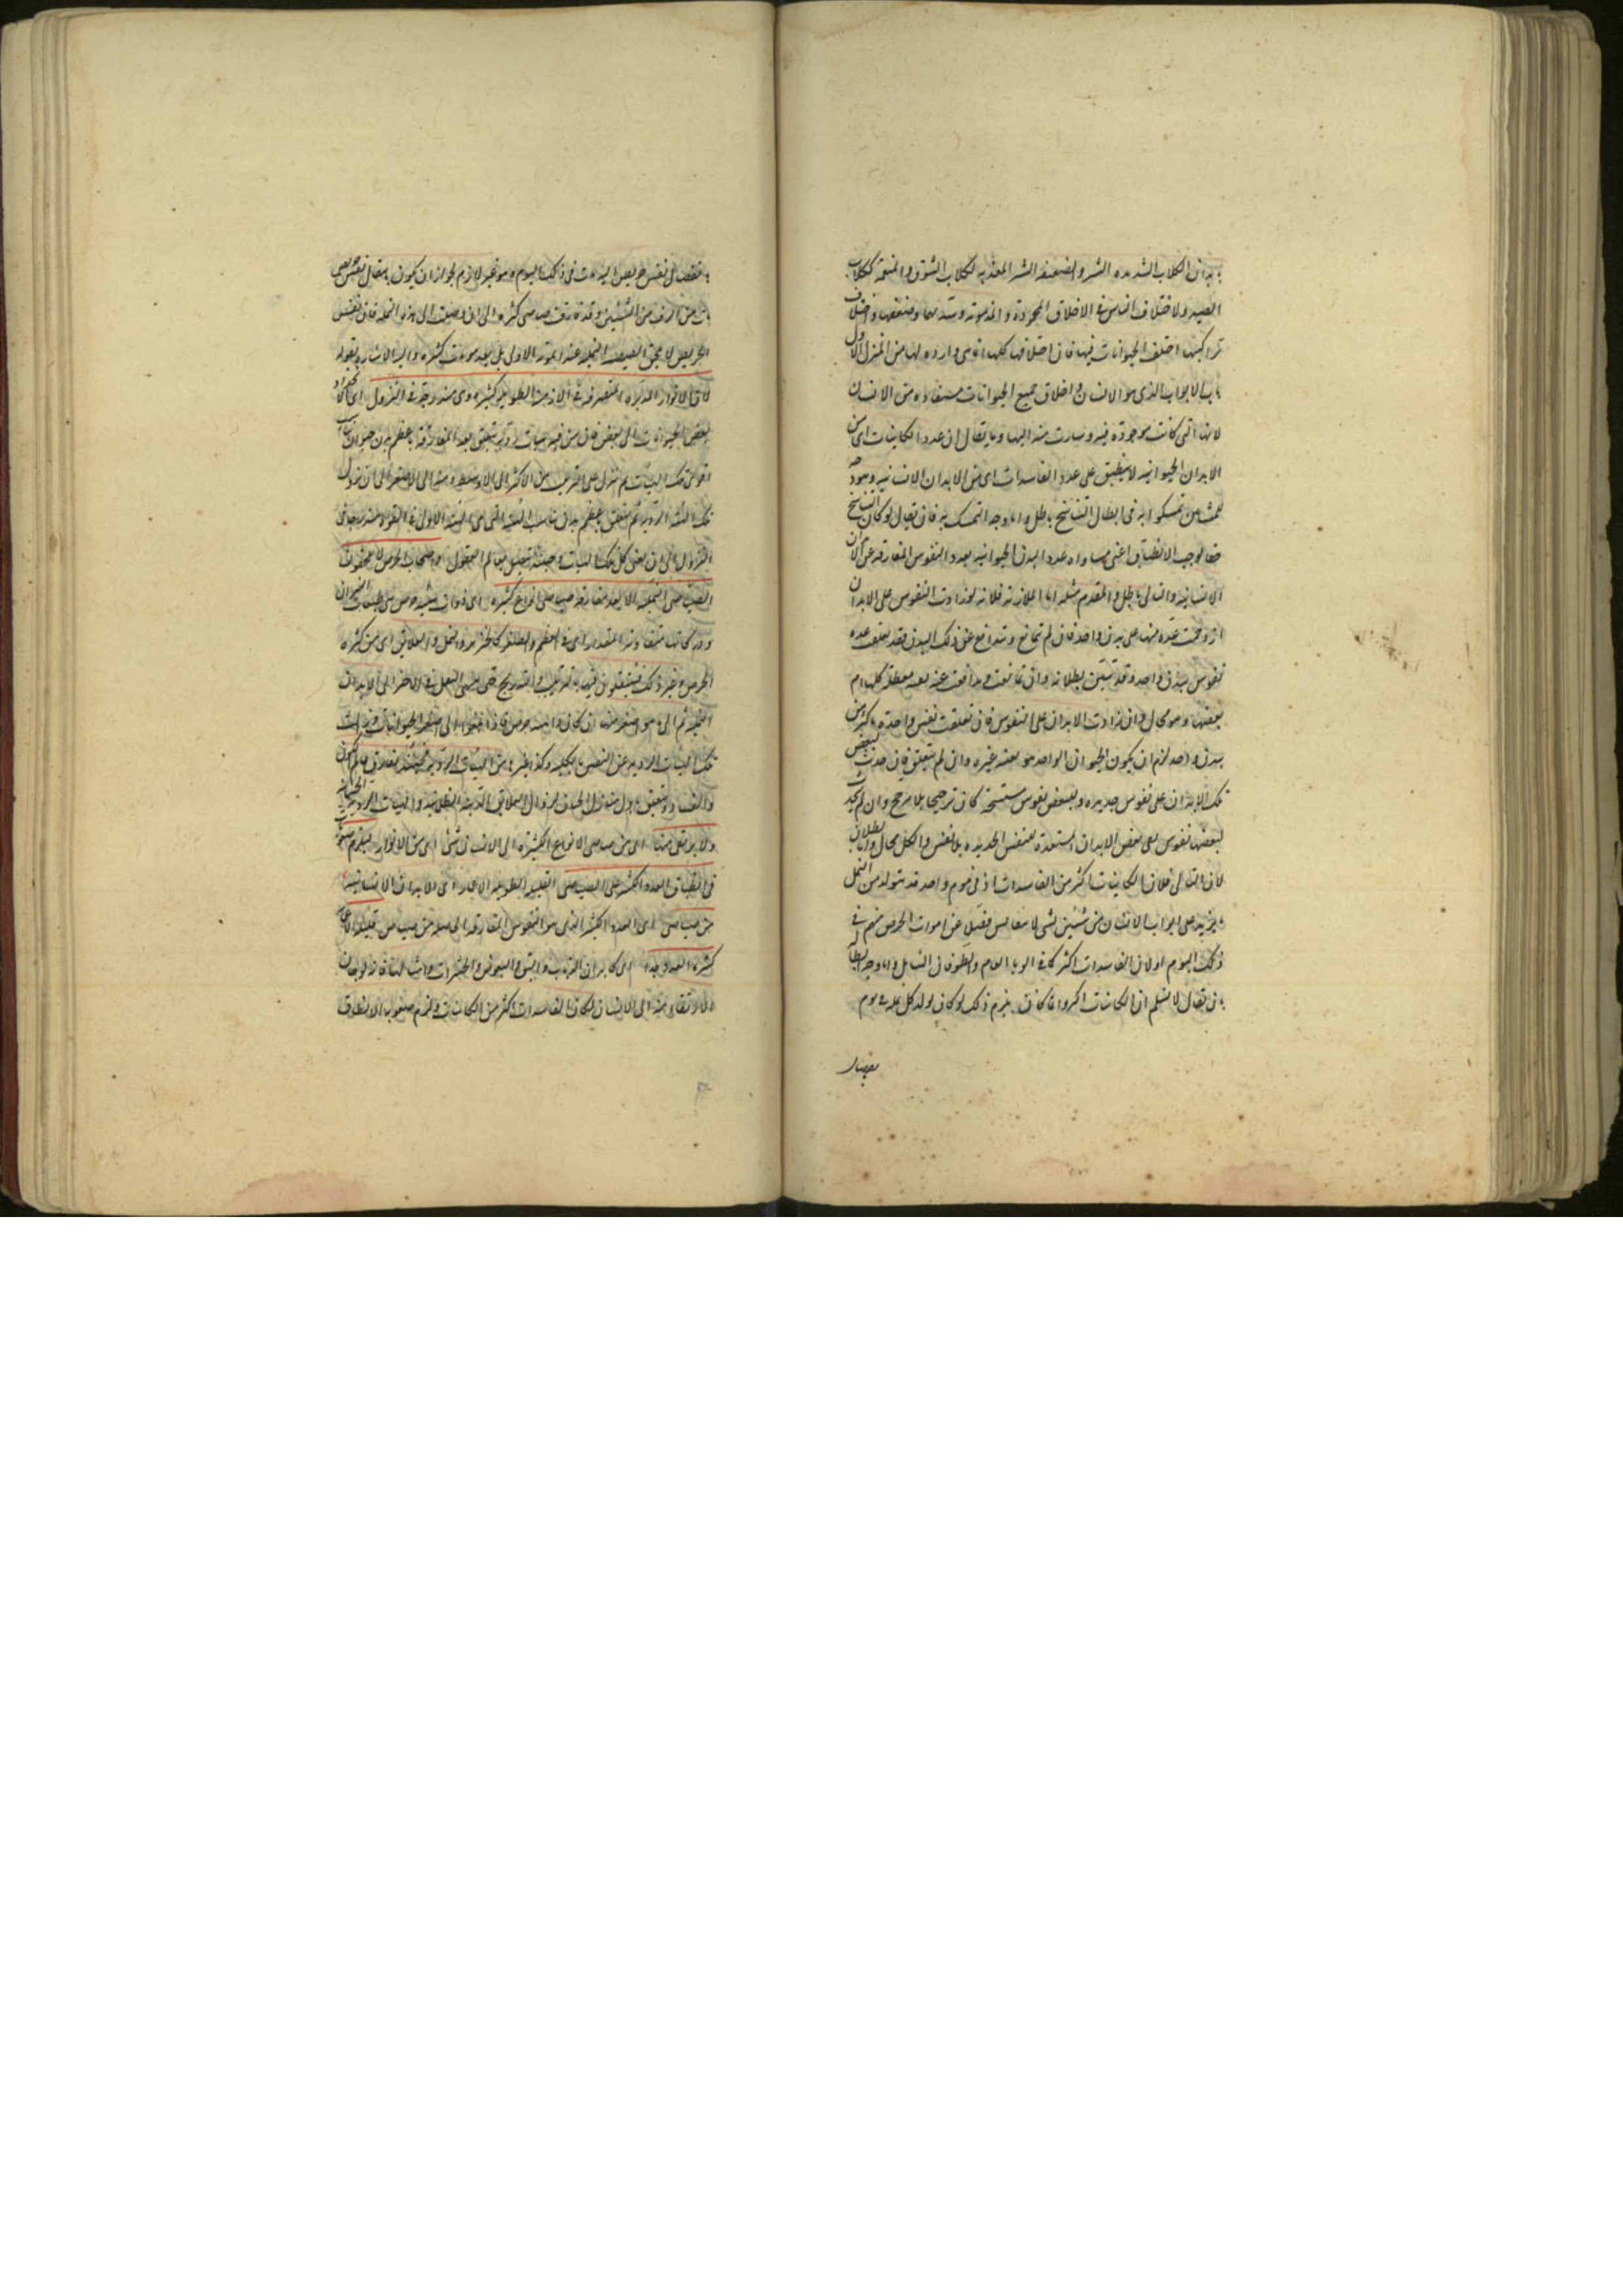 بابدان الكلاب الشديدة الشر والضعيفة الشر المعذبة ككلاب السوق والمنعمة ككلاب
الصيد ولاختلاف الناس في الاخلاق المحمودة والمذمومة وشدتها وضعفها واختلاف
تراكيبها اختلف الحيوانات فيها فان اختلافها كلها انما هي واردة لها من المنزل الاول
باب الابواب الذي هو الانسان واخلاق جميع الحيوانات مستفادة من الانسان
لانها التي كانت موجودة فيه وسارت منه اليها وما يقال ان عدد الكاينات اى من
الابدان الحيوانية لا ينطبق على عدد الفاسدات اى من الابدان الانسانية وهو
المشاءين تمسكوا به فى ابطال التناسخ باطل واما وجه التمسك به فان يقال لو كان التناسخ
حقا لوجب الانطباق اعنى مساواة عدد البدن الحيوانية بعدد النفوس المفارقة عن الابدان
الانسانية والتالى باطل والمقدم مثله اما الملازمة فلانه لو زادت النفوس على الابدان
ازدحمت عدة منها على بدن واحد فان لم تتمانع وتتدافع عن ذلك البدن فقد يتعلق عدة
نفوس ببدن واحد وقد تبين بطلانه وان تمانعت وتدافعت عنه بقيت معطلة كلها ام
بعضها وهو محال وان زادت الابدان على النفوس فان تعلقت نفس واحدة باكثر من
بدن واحد لزم ان يكون الحيوان الواحد هو بعينه غيره وان لم تتعلق فان حدثت لبعض
تلك الابدان على نفوس جديدة ولبعض نفوس مستنسخة كان ترجيحا بلا مرجح وان لم يحدث
لبعضها نفوس بقى بعض الابدان المستعدة للنفس الجديدة بلا نفس والكل محال واما بطلان
لان التالى فلان الكاينات اكثر من الفاسدات اذ فى يوم واحد قد يتولد من النمل
ما يزيد على ابواب الانسان من سنين لشى لا يتقايس فضلا عن اموات الحرص منهم فى
ذلك اليوم اولان الفاسدات اكثر كما فى الوباء العام والطوفان الشامل واما وجه بطلانه
فبان يقال لا نسلم ان الكاينات اكثر وانما كان يلزم ذلك لو كان تولد كل نملة فى يوم
باتصال نفس حريص اليه مات فى ذلك اليوم وهو غير لازم لجواز ان يكون باتصال نفس حريص
مات من الوف من السنين وقد فارقت صياصى كثيرة الى ان وصلت الى هذه النملة فان نفس
الحريص لا يلحق الصيصة النملية عند الموتة الاولى بل بعد موتات كثيرة واليه الاشارة بقوله
لان الانوار المدبرة المتصرفة فى الازمنة الطويلة كثيرة وهى متدرجة فى النزول اى
بعض الحيوانات الى بعض فان من فيه هيات ردية يتعلق بعد المفارقة باعظم بدن حيوان يناسب
اقوى تلك الهيات ثم ينزل على الترتيب من الاكثر الى الاوسط ومنه الى الاصغر الى ان يزول
تلك الهيئة الردية ثم يتعلق باعظم بدن يناسب الهيئة التى تلى الهيئة الاولى فى القوة متدرجا فى
النزول الى ان يفنى كل تلك الهيات وحينئذ يتصل بعالم العقول واصحاب الحرص لا يلحقون
الصياصى النملية الا بعد مفارقة صياصى انواع كثيرة اى ذوات هيئة حرص من طبقات الحيوان
ودركاتها متفاوتة المقدار اى فى العظم والصغر كالخنزير والنمل والعلايق اى من كثرة
الحرص وغير ذلك فينتقلون فيها بالترتيب والتدريج حتى ينتهى النقل فى الاخر الى الابدان
النملية ثم الى ما هو اصغر منها ان كان ذا هيئة حرص فاذا انتهوا الى اصغر الحيوانات وزالت
تلك الهيات الردية عن النفس بالكلية وكذا غيرها من الهيات الردية فحينئذ يفارق عالم الكون
والفساد ويتعلق باول منازل الجنان لزوال العلايق البدنية الظلمانية والهيات الردية الجسمانية
ولا يرتقى منها اى من صياصى الانواع الكثيرة الى الانسان شئ اى من الانوار فيلزم صعوبة
فى انطباق العدد الكثير على الصياصى القليلة الطويلة الاعمار اى الابدان الانسانية
من صياصى اى العدد الكثير الذى هو النفوس المفارقة الحاصلة من صياصى قليلة الاعمار
كثيرة العدد جدا اى كابدان الذباب والبق والبعوض والحشرات وامثالها فانه لو جاز
الارتقاء منها الى الانسان لكان الفاسدات اكثر من الكاينات ولزم صعوبة الانطباق